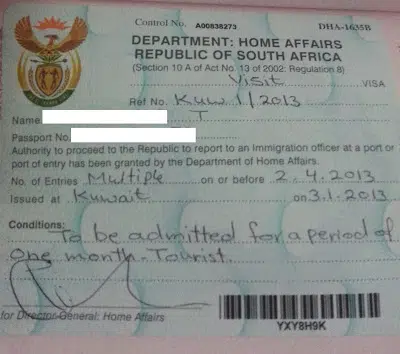 Control No. A00838273 DHA-1635B
DEPARTMENT: HOME AFFAIRS
REPUBLIC OF SOUTH AFRICA
(Section 10 A of Act No 13 of 2002: Regulation 8)
Visit VISA
Ref No. Kuw 1/2013
Name T
Passport No.
Authority to proceed to the Republic to report to an Immigration officer at a port or
port of entry has been granted by the Department of Home Affairs.
No. of Entries Multiple on or before 2.4.2013
Issued at Kuwait on 3.1.2013
Conditions:
To be admitted for a period of
One month. Tourist.
for Director-General: Home Affairs
YXY8H9K